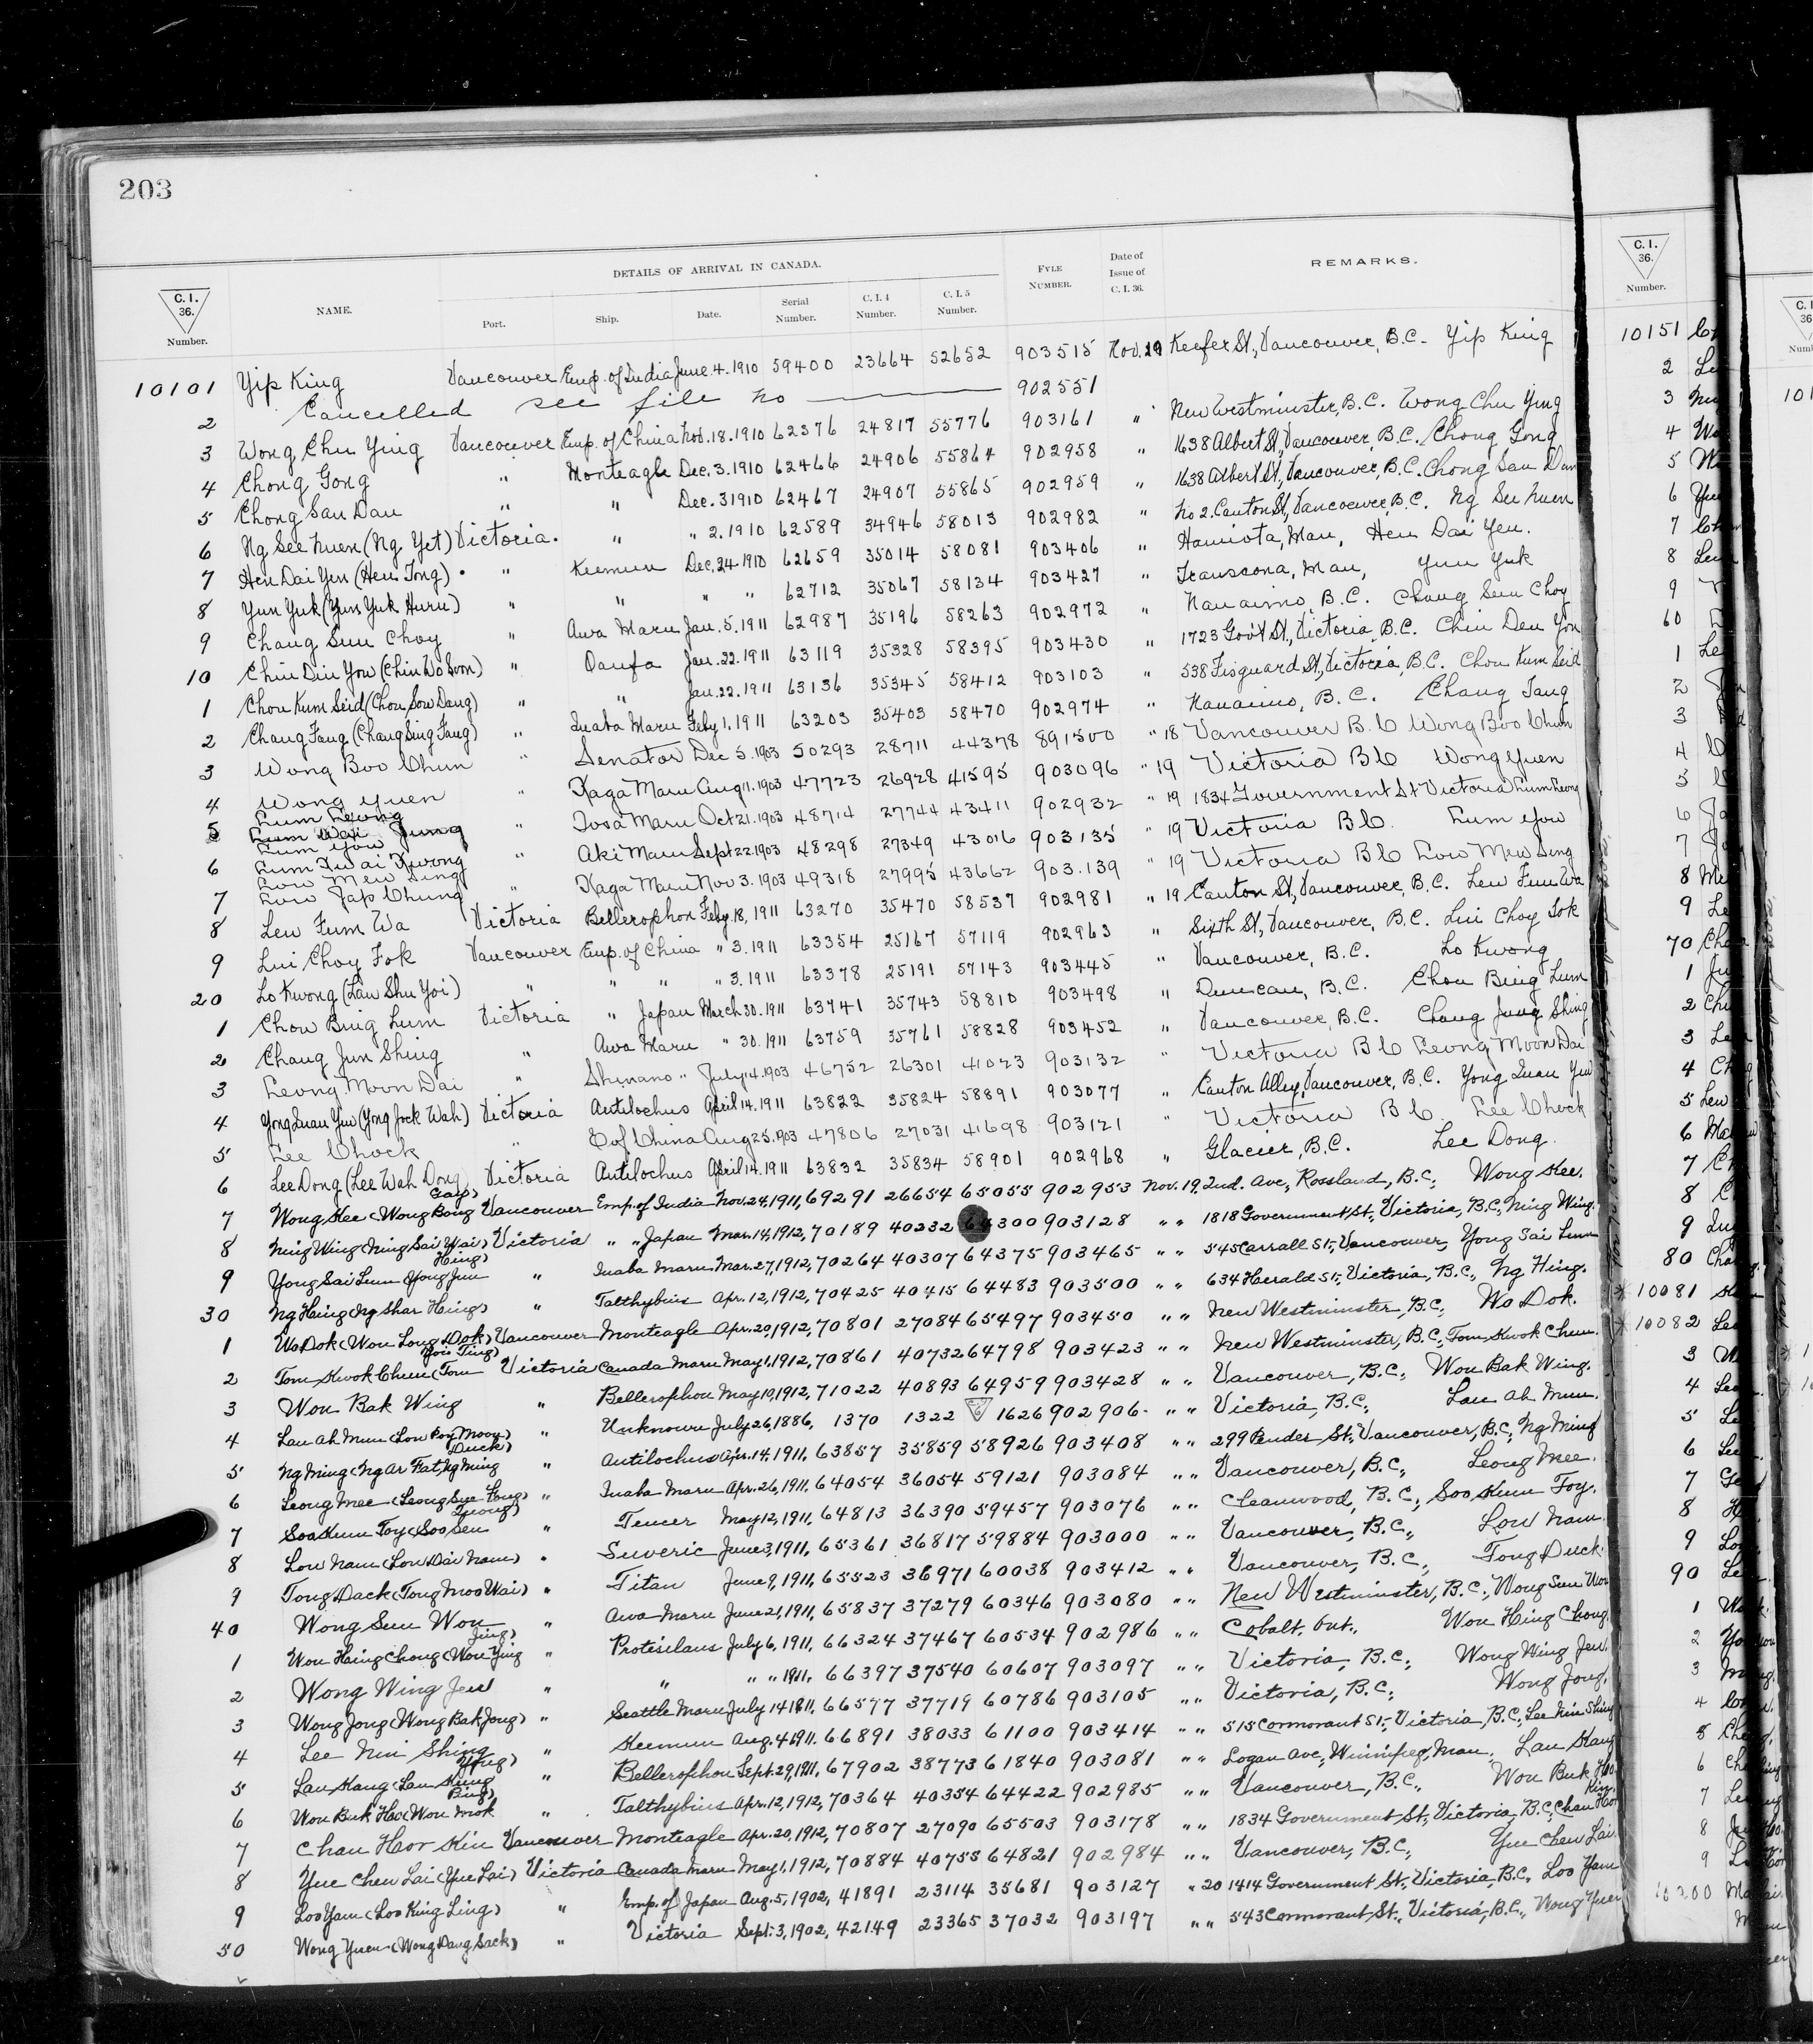 203
DETAILS OF ARRIVAL IN CANADA.
C. I. 36. Number. NAME. Port. Ship. Date. Serial Number. C. I. 4 Number. C. I. 5 Number. FYLE NUMBER. Date of Issue of C. I. 36. REMARKS.
10101 Yip King Vancouver Emp. of India June 4. 1910 59400 23664 52652 903515 Nov. 19 Keefer St., Vancouver, B.C. Yip King
2 Cancelled see file no 902551
3 Wong Chu Ying Vancouver Emp. of China Nov. 18. 1910 62376 24817 55776 903161 " New Westminster, B.C. Wong Chu Ying
4 Chong Gong " Monteagle Dec. 3. 1910 62466 24906 55864 902958 " 1638 Albert St., Vancouver, B.C. Chong Gong
5 Chong San Dan " " Dec. 3 1910 62467 24907 55865 902959 " 1638 Albert St., Vancouver, B.C. Chong San Dan
6 Ng See Nuen (Ng Yet) Victoria. " " 2. 1910 62589 34946 58013 902982 " No 2. Canton St., Vancouver, B.C. Ng See Nuen
7 Hen Dai Yen (Hen Tong) " Keemun Dec. 24. 1910 62659 35014 58081 903406 " Hamiota, Man, Hen Dai Yen.
8 Yun Yuk (Yun Yuk Huru) " " " " 62712 35067 58134 903427 " Transcona, Man, Yun Yuk
9 Chang Sun Choy " Awa Maru Jan. 5. 1911 62987 35196 58263 902972 " Nanaimo, B.C. Chang Sun Choy
10 Chin Din You (Chin Do Soon) " Oanfa Jan. 22. 1911 63119 35328 58395 903430 " 1723 Gov't St., Victoria, B.C. Chin Den You
1 Chou Kum Seid (Chou Sow Dang) " " Jan. 22. 1911 63136 35345 58412 903103 " 538 Fisguard St., Victoria, B.C. Chou Kum Seid
2 Chang Fang (Chang Sing Fang) " Inaba Maru Feby 1. 1911 63203 35403 58470 902974 " Nanaimo, B.C. Chang Fang
3 Wong Boo Chun " Senator Dec 5. 1903 50293 28711 44378 891500 " 18 Vancouver B.C Wong Boo Chun
4 Wong Yuen " Kaga Maru Aug 11. 1903 47723 26928 41595 903096 " 19 Victoria B C Wong Yuen
5 Lum Leong Lum Wai Jung " Tosa Maru Oct 21. 1903 48714 27744 43411 902932 " 19 1834 Government St Victoria Lum Leong
6 Lum You Lum Kwai Kwong " Aki Maru Sept 22. 1903 48298 27349 43016 903135 " 19 Victoria B C. Lum You
7 Low Mew Sing Low Jap Chung " Kaga Maru Nov 3. 1903 49318 27995 43662 903.139 " 19 Victoria B C Low Mew Sing
8 Leu Fum Wa Victoria Bellerophon Feby. 18, 1911 63270 35470 58537 902981 " 19 Canton St., Vancouver, B.C. Leu Fum Wa
9 Lui Choy Fok Vancouver Emp. of China " 3. 1911 63354 25167 57119 902963 " Sixth St., Vancouver, B.C. Lui Choy Fok
20 Lo Kwong (Lau Shu Yoi) " " " " 3. 1911 63378 25191 57143 903445 " Vancouver, B.C. Lo Kwong
1 Chou Bing Lum Victoria " Japan March 30. 1911 63741 35743 58810 903498 " Duncan, B.C. Chou Bing Lum
2 Chang Jun Shing " Awa Maru " 30. 1911 63759 35761 58828 903452 " Vancouver, B.C. Chang Jung Shing
3 Leong Moon Dai " Shinano " July 14. 1903 46752 26301 41023 903132 " Victoria B C Leong Moon Dai
4 Yong Quan Yin (Yong Jock Wah) Victoria Antilochus April 14. 1911 63822 35824 58891 903077 " Canton Alley, Vancouver, B.C. Yong Quan Yin
5 Lee Chock " E of China Aug 25. 1903 47806 27031 41698 903121 " Victoria B C. Lee Chock
6 Lee Dong (Lee Wah Dong) Victoria Antilochus April 14. 1911 63832 35834 58901 902968 " Glacier, B.C. Lee Dong.
7 Wong Kee (Wong Bong Gay) Vancouver Emp. of India Nov. 24, 1911, 69291 26654 65055 902953 Nov. 19. 2nd. Ave., Rossland, B.C., Wong Kee.
8 Ning Wing (Ning Sai Wai) Victoria " " Japan Mar. 14, 1912, 70189 40232 64300 903128 " " 1818 Government St., Victoria, B.C., Ning Wing.
9 Yong Sai Lum (Yong Jun Hing) " Inaba Maru Mar. 27, 1912, 70264 40307 64375 903465 " " 545 Carrall St., Vancouver, Yong Sai Lum
30 Ng Hing (Ng Shar Hing) " Talthybius Apr. 12, 1912, 70425 40415 64483 903500 " " 634 Herald St., Victoria, B.C., Ng Hing.
1 Wo Dok (Wou Long Dok) Vancouver Monteagle Apr. 20, 1912, 70801 27084 65497 903450 " " New Westminster, B.C., Wo Dok.
2 Tom Kwok Chun (Tom Yois Ting) Victoria Canada Maru May 1, 1912, 70861 40732 64798 903423 " " New Westminster, B.C., Tom Kwok Chun.
3 Wou Bak Wing " Bellerophon May 10, 1912, 71022 40893 64959 903428 " " Vancouver, B.C., Wou Bak Wing.
4 Lau Ah Mun (Low Poy Moon) " Unknown July 26, 1886, 1370 1322 1626 902906. " " Victoria, B.C., Lau Ah Mun.
5 Ng Ming (Ng Ar Fat, Ng Ming Duck) " Antilochus Apr. 14, 1911, 63857 35859 58926 903408 " " 299 Pender St., Vancouver, B.C., Ng Ming
6 Leong Mee (Leong Sue Fong) " Inaba Maru Apr. 26, 1911, 64054 36054 59121 903084 " " Vancouver, B.C., Leong Mee.
7 Soo Kum Foy (Soo Sen Quong) " Teucer May 12, 1911, 64813 36390 59457 903076 " " Cleanwood, B.C., Soo Kum Foy.
8 Low Nam (Low Dai Nam) " Suveric June 3, 1911, 65361 36817 59884 903000 " " Vancouver, B.C., Low Nam.
9 Tong Dack (Tong Moo Wai) " Titan June 9, 1911, 65523 36971 60038 903412 " " Vancouver, B.C., Tong Duck.
40 Wong Sun Wou " Awa Maru June 21, 1911, 65837 37279 60346 903080 " " New Westminster, B.C., Wong Sun Wou
1 Wou Hing Chong (Wou Ying Jing) " Protesilaus July 6, 1911, 66324 37467 60534 902986 " " Cobalt, Ont., Wou Hing Chong.
2 Wong Wing Jew " " " " 1911, 66397 37540 60607 903097 " " Victoria, B.C., Wong Wing Jew.
3 Wong Jong (Wong Bak Jong) " Seattle Maru July 14, 1911, 66577 37719 60786 903105 " " Victoria, B.C., Wong Jong.
4 Lee Nin Shing " Keemun Aug. 4, 1911. 66891 38033 61100 903414 " " 515 Cormorant St., Victoria, B.C., Lee Nin Shing
5 Lau Kang (Lau Kung Hing) " Bellerophon Sept. 29, 1911, 67902 38773 61840 903081 " " Logan Ave., Winnipeg, Man. Lau Kang
6 Wou Buk Hoo (Wou Mok Bing) " Talthybius Apr. 12, 1912, 70364 40354 64422 902985 " " Vancouver, B.C., Wou Buk Hoo
7 Chan Hoor Kin Vancouver Monteagle Apr. 20, 1912, 70807 27090 65503 903178 " " 1834 Government St., Victoria, B.C., Chan Hoor Kin.
8 Yue Chew Lai (Yue Lai) Victoria Canada Maru May 1, 1912, 70884 40755 64821 902984 " " Vancouver, B.C., Yue Chew Lai.
9 Loo Yam (Loo King Ling) " Emp. of Japan Aug. 5, 1902, 41891 23114 35681 903127 " 20 1414 Government St., Victoria, B.C., Loo Yam
50 Wong Yuen (Wong Dang Sack) " Victoria Sept. 3, 1902, 42149 23365 37032 903197 " " 543 Cormorant St., Victoria, B.C., Wong Yuen
C. I. 36. Number.
10151
2
3
4
5
6
7
8
9
60
1
2
3
4
5
6
7
8
9
70
1
2
3
4
5
6
7
8
9
80
10081
10082
3
4
5
6
7
8
9
90
1
2
3
4
5
6
7
8
9
10200